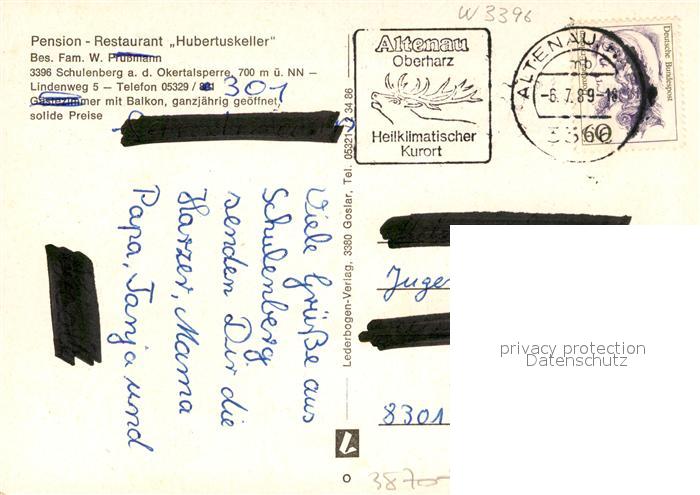 W 3396
Pension - Restaurant „Hubertuskeller”
Bes. Fam. W. Prußmann
3396 Schulenberg a. d. Okertalsperre, 700 m ü. NN –
Lindenweg 5 – Telefon 05329 / 301
Gästezimmer mit Balkon, ganzjährig geöffnet,
solide Preise
Viele Grüße aus
Schulenberg
senden Dir die
Harzer, Mama
Papa, Tanja und
Lederbogen-Verlag, 3380 Goslar, Tel. 05321 / 2 34 86
Altenau
Oberharz
Heilklimatischer
Kurort
ALTENAU
mb
-6.7.89-18
3396
Deutsche Bundespost
60
Juge
8301
privacy protection
Datenschutz
3870-